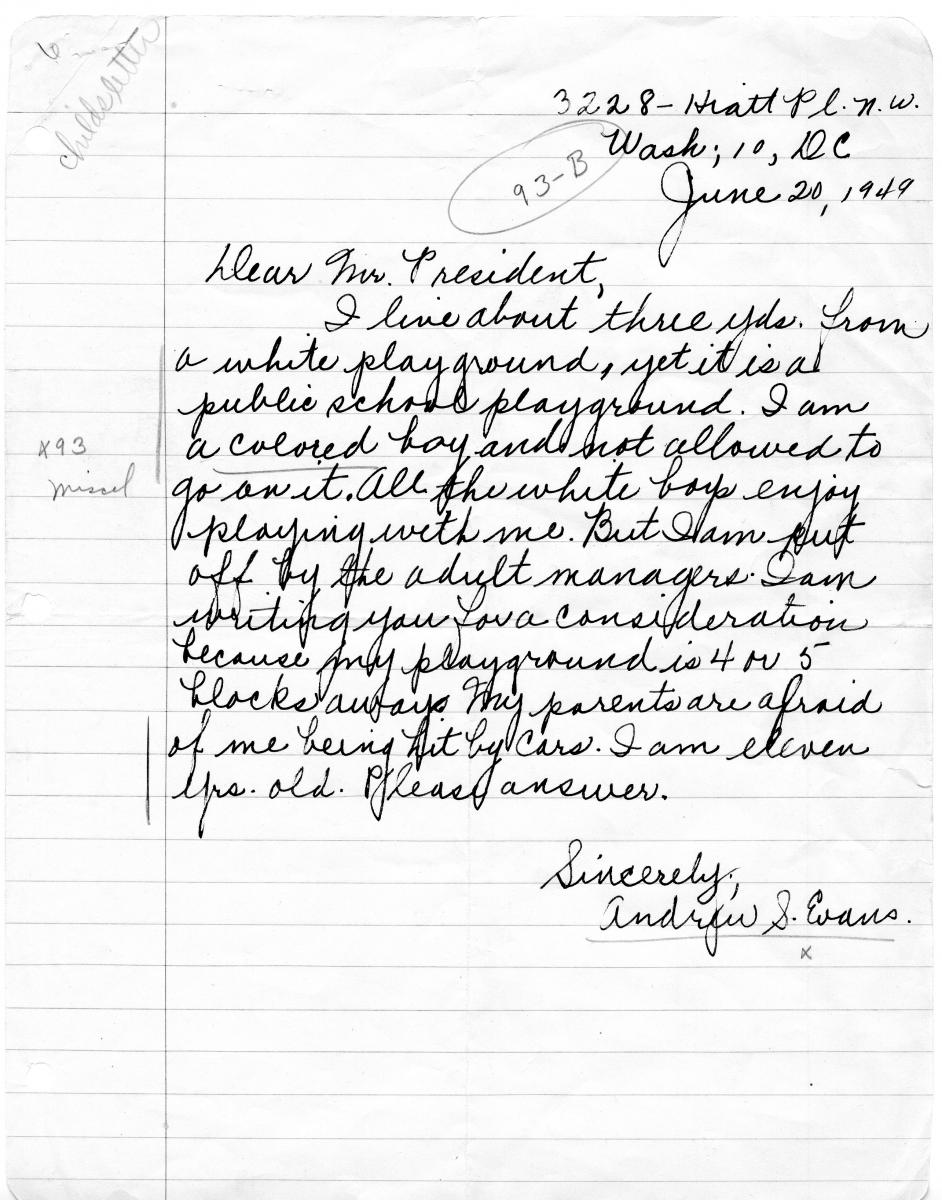 6
childsletter
3228 - Hiatt Pl. N.W.
Wash; 10, DC
93-B
June 20, 1949
Dear Mr. President,
I live about three yds. from
a white playground, yet it is a
public school playground. I am
a colored boy and not allowed to
x93
go on it. All the white boys enjoy
playing with me. But I am put
off by the adult managers. I am
writing you for a consideration
because my playground is 4 or 5
blocks aways My parents are afraid
of me being hit by cars. I am eleven
yrs. old. Please answer.
Sincerely;,
Andrew S. Evans.
x